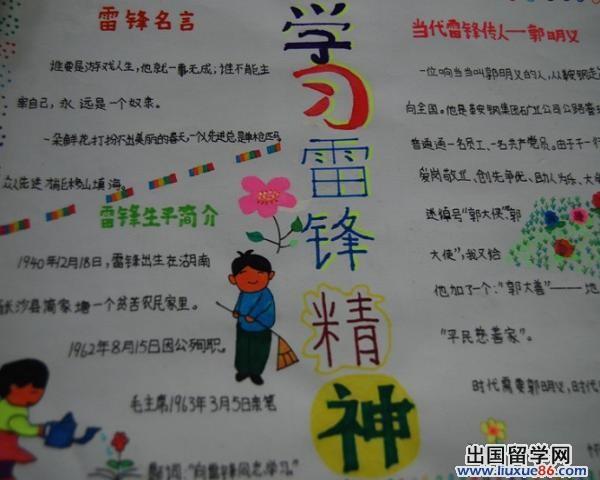 雷锋名言
谁要是游戏人生，他就一事无成；谁不能主
宰自己，永远是一个奴隶。
一朵鲜花打扮不出美丽的春天，一个人先进总是单枪匹马
众人先进
填海。
雷锋生平简介
1940年12月18日，雷锋出生在湖南
长沙县简家塘一个贫苦农民家里。
1962年8月15日因公殉职。
毛主席1963年3月5日亲笔
题词："向雷锋同志学习。"
学习雷锋精神
当代雷锋传人—郭明义
一位响当当叫郭明义的人，从鞍钢走
向全国。他是鞍钢集团矿业公司公路
普通通一名员工、一名共产党员。由于
爱岗敬业、创先争优、助人为乐、
送绰号"郭大使"郭
大使"，我又给
他加了个："郭大善"——
"平民慈善家"。
时代需要郭明义，时代
出国留学网
www.liuxue86.com